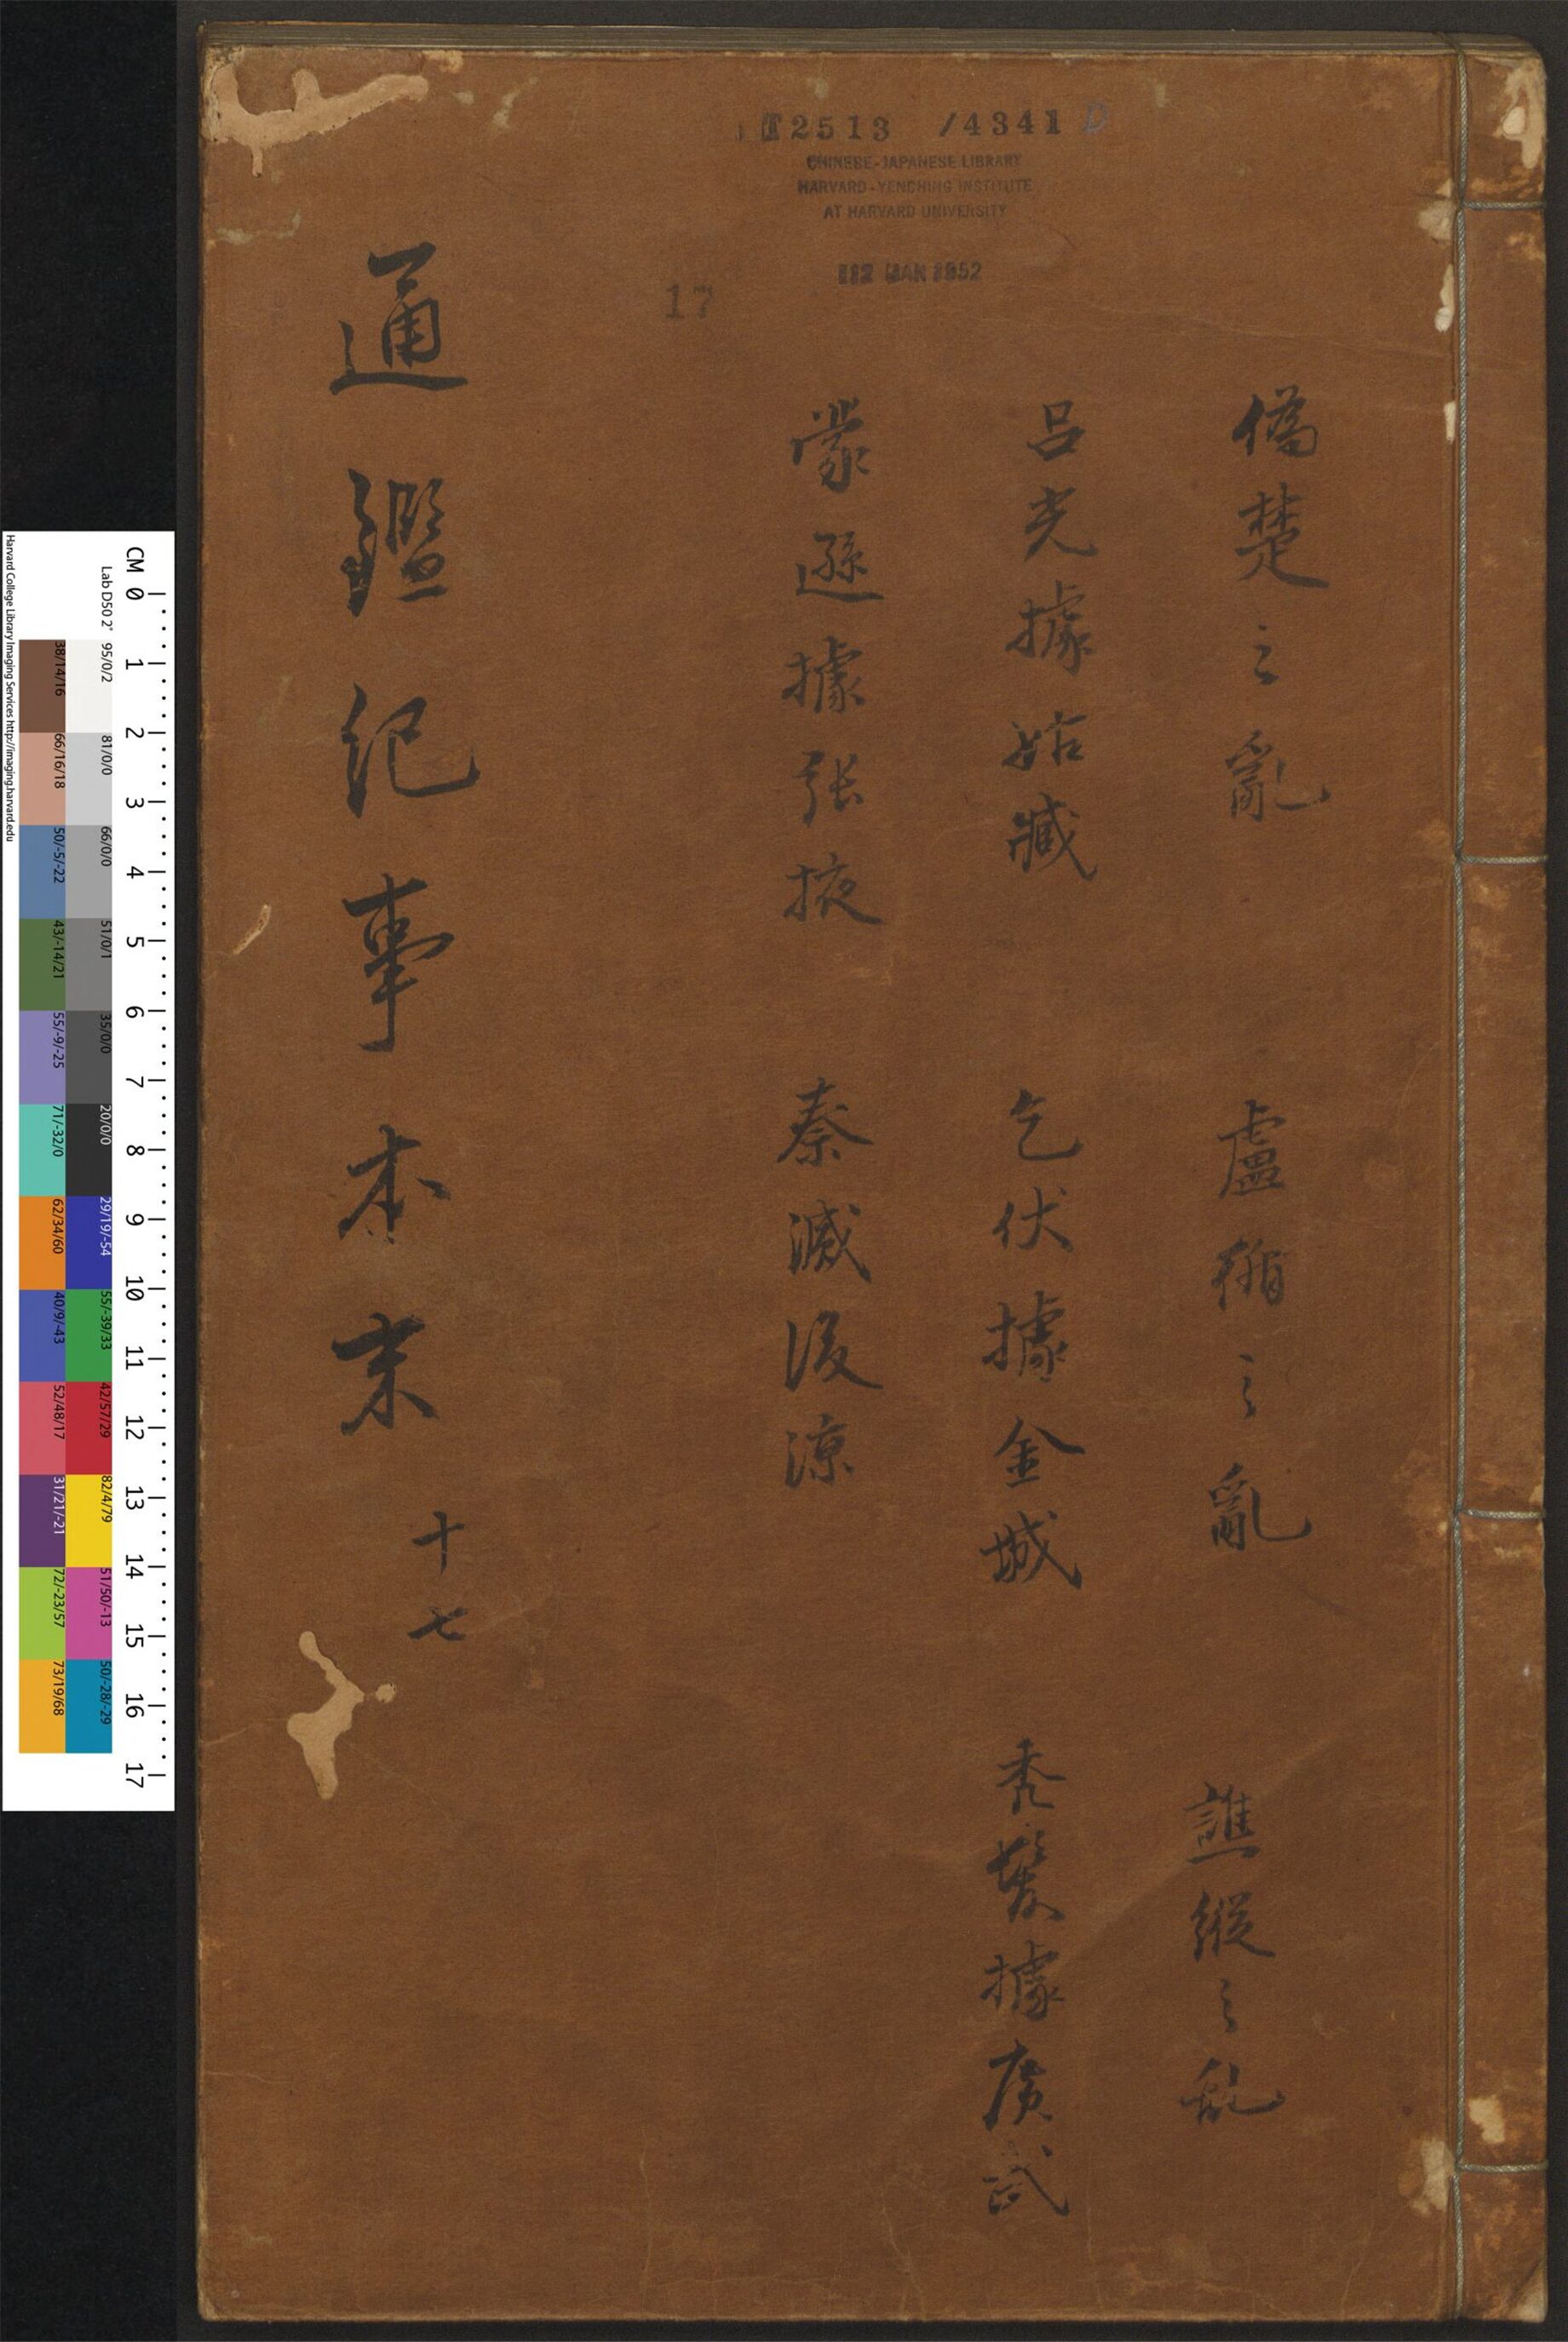 T2513 /4341 D
CHINESE-JAPANESE LIBRARY
HARVARD-YENCHING INSTITUTE
AT HARVARD UNIVERSITY
JAN 1952
17
僞楚之亂 盧循之亂 譙縱之乱
呂光據姑臧 乞伏據金城 秃髮據廣武
蒙遜據張掖 秦滅後涼
通鑑紀事本末 十七
CM 0 1 2 3 4 5 6 7 8 9 10 11 12 13 14 15 16 17
Lab D50 2° 95/0/2 81/0/0 66/0/0 51/0/1 35/0/0 20/0/0 29/19/-54 55/-39/33 42/57/29 82/4/79 51/50/-13 50/-28/-29
38/14/16 66/16/18 50/-5/-22 43/-14/21 55/-9/-25 71/-32/0 62/34/60 40/9/-43 52/48/17 31/21/-21 72/-23/57 73/19/68
Harvard College Library Imaging Services http://imaging.harvard.edu